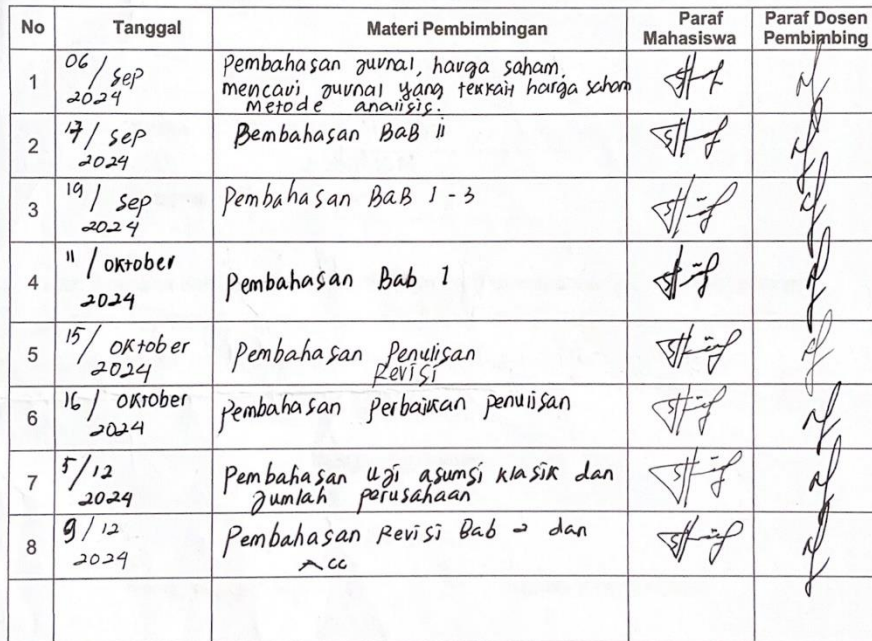 No Tanggal Materi Pembimbingan Paraf Mahasiswa Paraf Dosen Pembimbing
1 06/Sep 2024 Pembahasan Jurnal, harga saham,
mencari jurnal yang terkait harga saham
metode analisis.
2 17/Sep 2024 Bembahasan BaB ii
3 19/Sep 2024 Pembahasan BaB 1-3
4 11/Oktober 2024 Pembahasan Bab 1
5 15/Oktober 2024 Pembahasan Penulisan
Revisi
6 16/Oktober 2024 Pembahasan Perbaikan penulisan
7 5/12 2024 Pembahasan uji asumsi klasik dan
Jumlah perusahaan
8 9/12 2024 Pembahasan Revisi Bab 2 dan
Acc